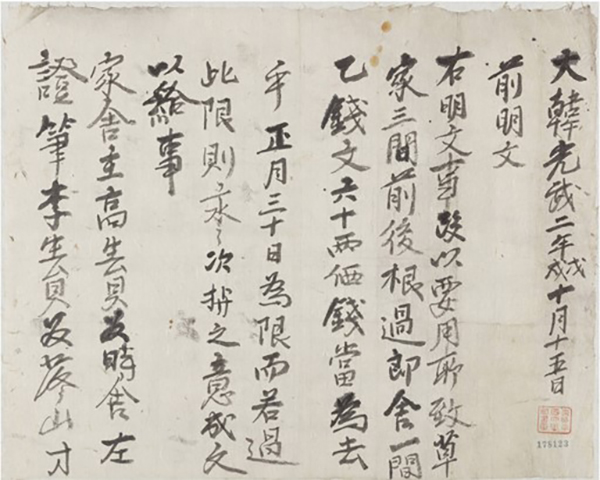 大韓光武二年戊戌十月十五日
前明文
右明文事段以要用所致草
家三間前後根過郎舍一間
乙錢文六十兩価錢當為去
乎正月三十日為限而若過
此限則永〻次捧之意成文
以給事
家舍主高生員 時舍左
證筆李生員 山寸